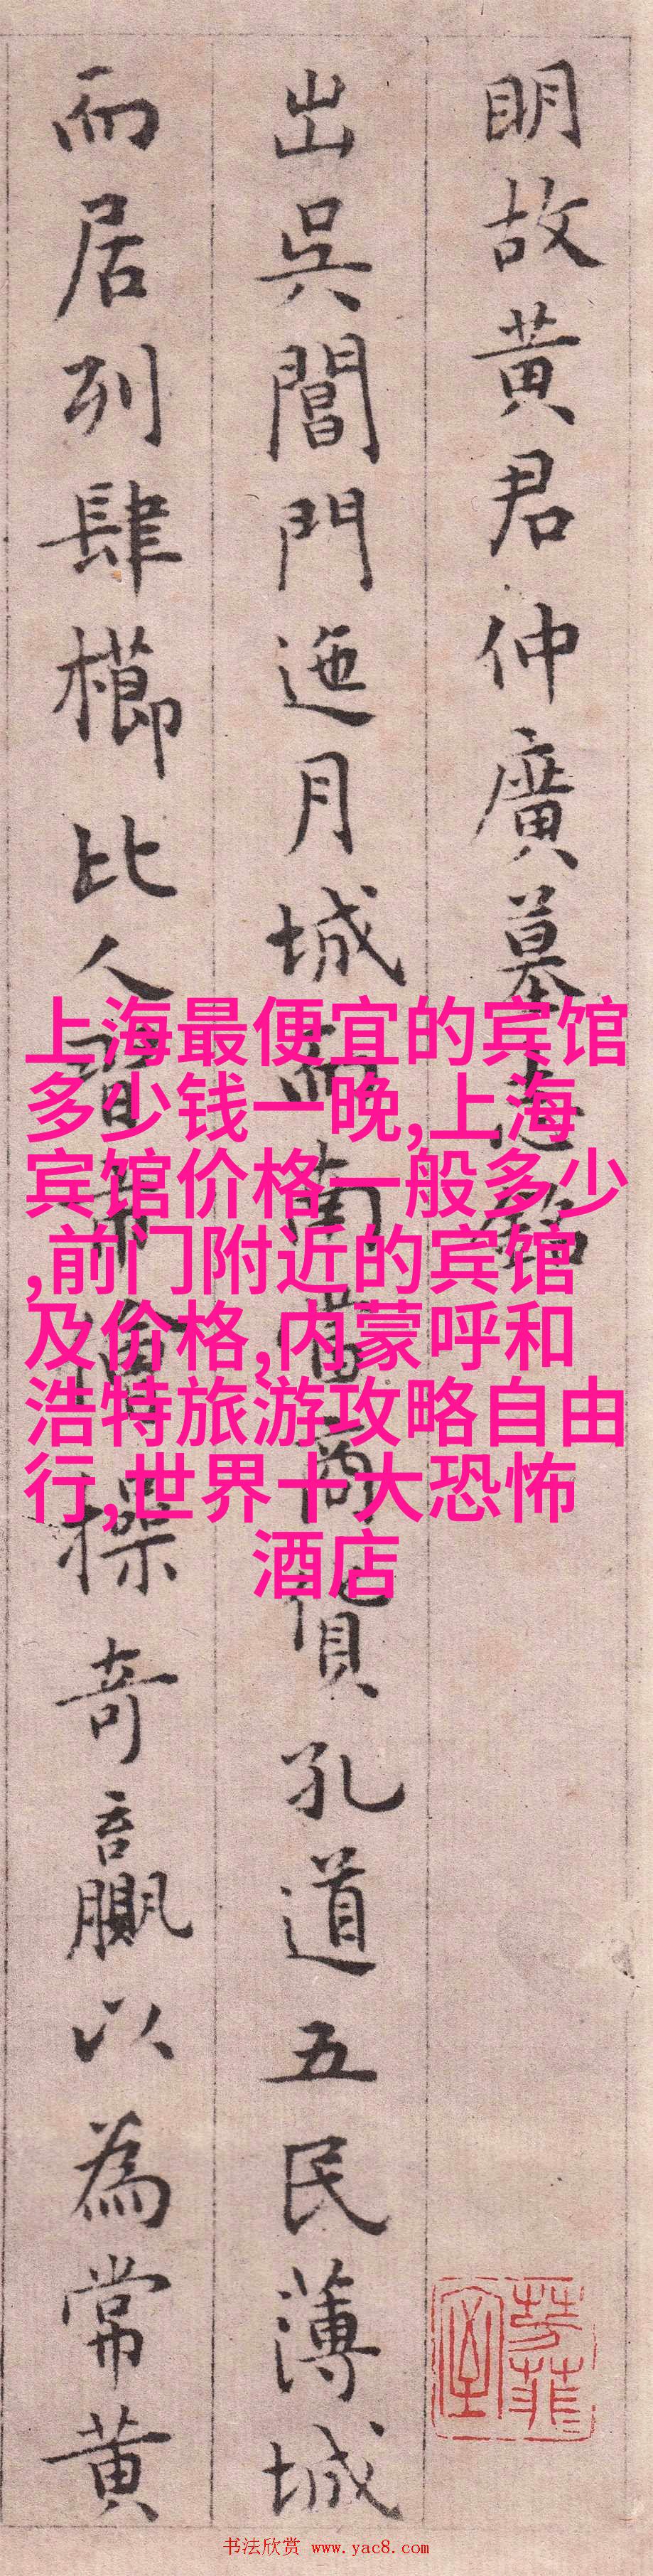 明故黄君仲廣墓志銘
出吳閶門迤月城而南當商貨孔道五民薄城
而居列肆櫛比人習市儈操奇贏以為常黄
上海最便宜的宾馆
多少钱一晚,上海
宾馆价格一般多少
,前门附近的宾馆
及价格,内蒙呼和
浩特旅游攻略自由
行,世界十大恐怖
酒店
书法欣赏 www.yac8.com